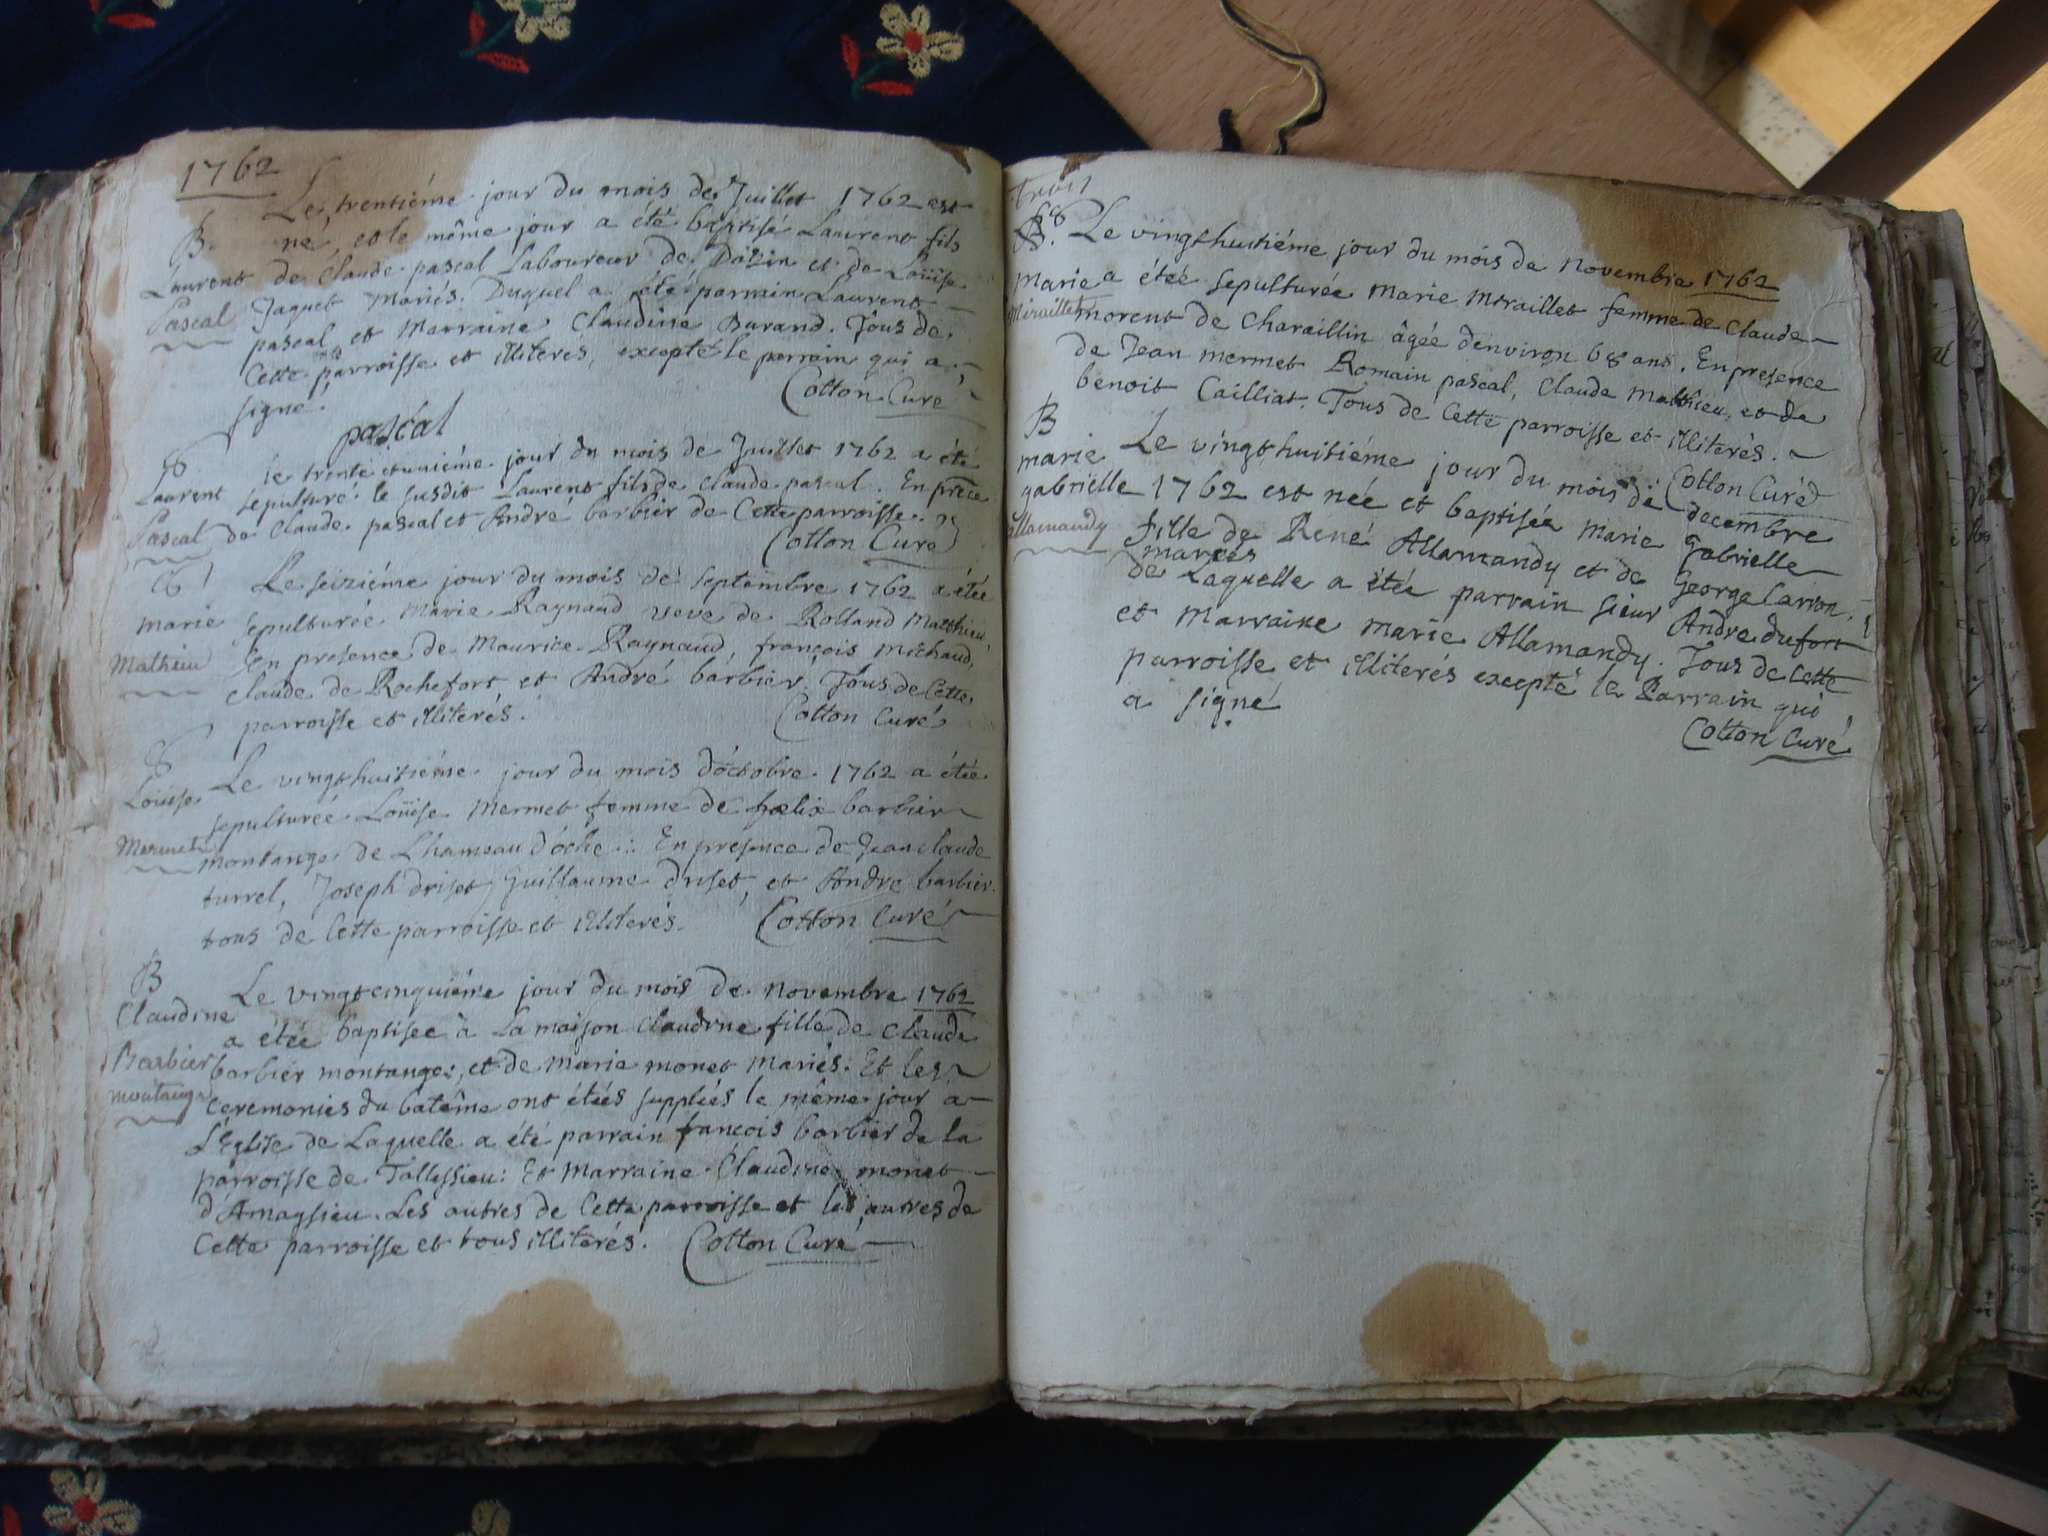 1762
Le trentiéme jour du mois de Juillet 1762 est
B. né et le même jour a été baptisé Laurent fils
Laurent de Claude pascal Laboureur de Dazin et de Loüise
Pascal Jaquet mariés. Duquel a été parrain Laurent
pascal et Marraine Claudine Burand. Tous de
Cette parroisse et illiterés, excepté le parrain qui a
signé. Cotton Curé
pascal
S. le trente et uniéme jour du mois de Juillet 1762 a été
Laurent sepulturé le susdit Laurent fils de Claude pascal. En prēce
Pascal de Claude pascal et André barbier de Cette parroisse.
Cotton Curé
S Le seiziéme jour du mois de septembre 1762 a étée
marie sepulturée Marie Raynaud veve de Rolland Matthieu
Mathieu En presence de Maurice Raynaud, françois michaud,
claude de Rochefort, et André barbier. Tous de Cette
parroisse et illiterés. Cotton Curé
S
Loüise Le vingthuitiéme jour du mois d'octobre 1762 a étée
sepulturée Loüise Mermet femme de fœlix barbier
Mermet montange de L'hameau d'oche. En presence de Jean claude
turrel, Joseph driset, Guillaume driset, et Andre barbier
tous de Cette parroisse et illiterés. Cotton Curé
B
Claudine Le vingtcinquiéme jour du mois de novembre 1762
a étée baptisée à La maison Claudine fille de Claude
Barbier barbier montange, et de marie monet Mariés. Et les
montange Ceremonies du batême ont étés suppliés le même jour a
L'Eglise de Laquelle a été parrain francois barbier de la
parroisse de Talissieu: Et Marraine Claudine monet
d'Amaysieu. Les autres de Cette parroisse et les autres de
Cette parroisse et tous illiterés. Cotton Curé
S. Le vingthuitiéme jour du mois de novembre 1762
Marie a étée sepulturée Marie Miraillet femme de Claude
Miraillet morent de Charaillin âgée denviron 68 ans. En presence
de Jean mermet Romain pascal, Claude Matthieu, et de
benoit Cailliat. Tous de Cette parroisse et illiterés.
Cotton Curé
B
marie Le vingthuitiéme jour du mois de decembre
gabrielle 1762 est née et baptisée Marie Gabrielle
allamandy fille de René Allamandy et de George Carron
mariés
de Laquelle a étée parrain sieur Andre dufort
et Marraine Marie Allamandy. Tous de Cette
parroisse et illiterés excepté le Parrain qui
a signé
Cotton Curé